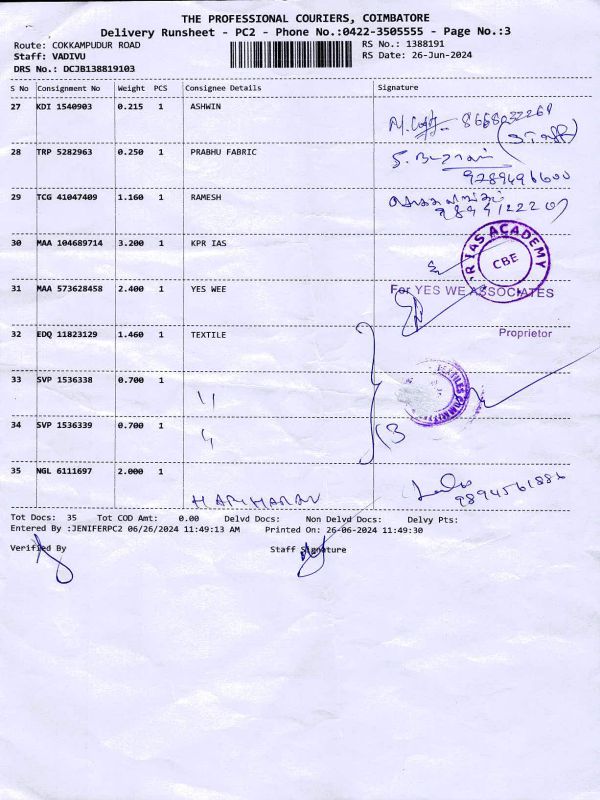 THE PROFESSIONAL COURIERS, COIMBATORE
Delivery Runsheet - PC2 - Phone No.:0422-3505555 - Page No.:3
Route: COKKAMPUDUR ROAD RS No.: 1388191
Staff: VADIVU RS Date: 26-Jun-2024
DRS No.: DCJB138819103
S No Consignment No Weight PCS Consignee Details Signature
27 KDI 1540903 0.215 1 ASHWIN
28 TRP 5282963 0.250 1 PRABHU FABRIC
9789496600
29 TCG 41047409 1.160 1 RAMESH
30 MAA 104689714 3.200 1 KPR IAS
IAS ACADEMY
CBE
31 MAA 573628458 2.400 1 YES WEE
For YES WE ASSOCIATES
Proprietor
32 EDQ 11823129 1.460 1 TEXTILE
33 SVP 1536338 0.700 1 "
34 SVP 1536339 0.700 1 "
35 NGL 6111697 2.000 1 HARIHARAN
9894561886
Tot Docs: 35 Tot COD Amt: 0.00 Delvd Docs: Non Delvd Docs: Delvy Pts:
Entered By :JENIFERPC2 06/26/2024 11:49:13 AM Printed On: 26-06-2024 11:49:30
Verified By Staff Signature